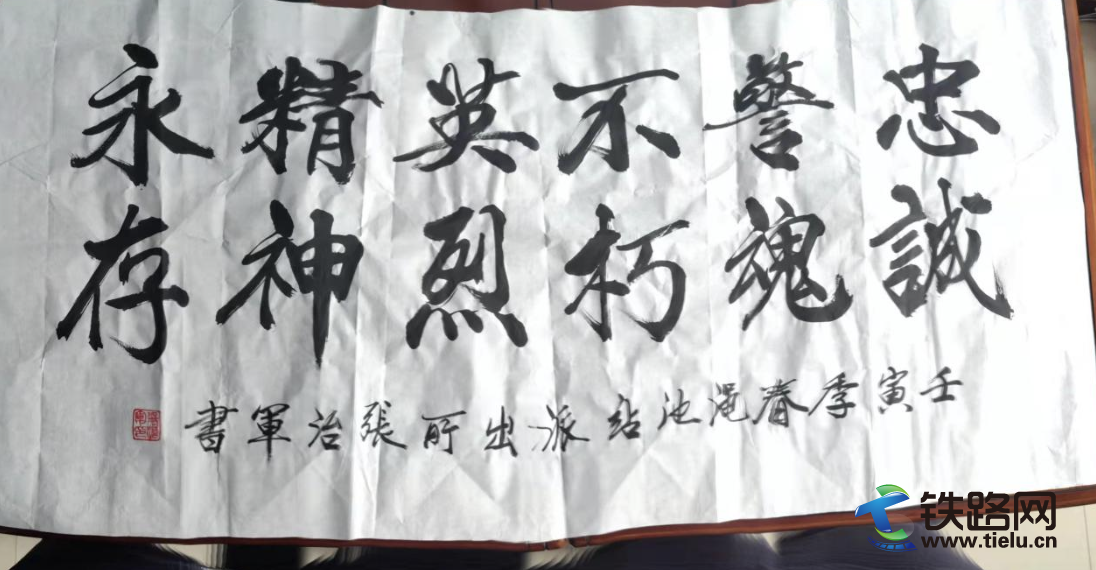 忠誠
警魂
不朽
英烈
精神
永存
壬寅季春渑池站派出所張治軍書
铁路网
www.tielu.cn